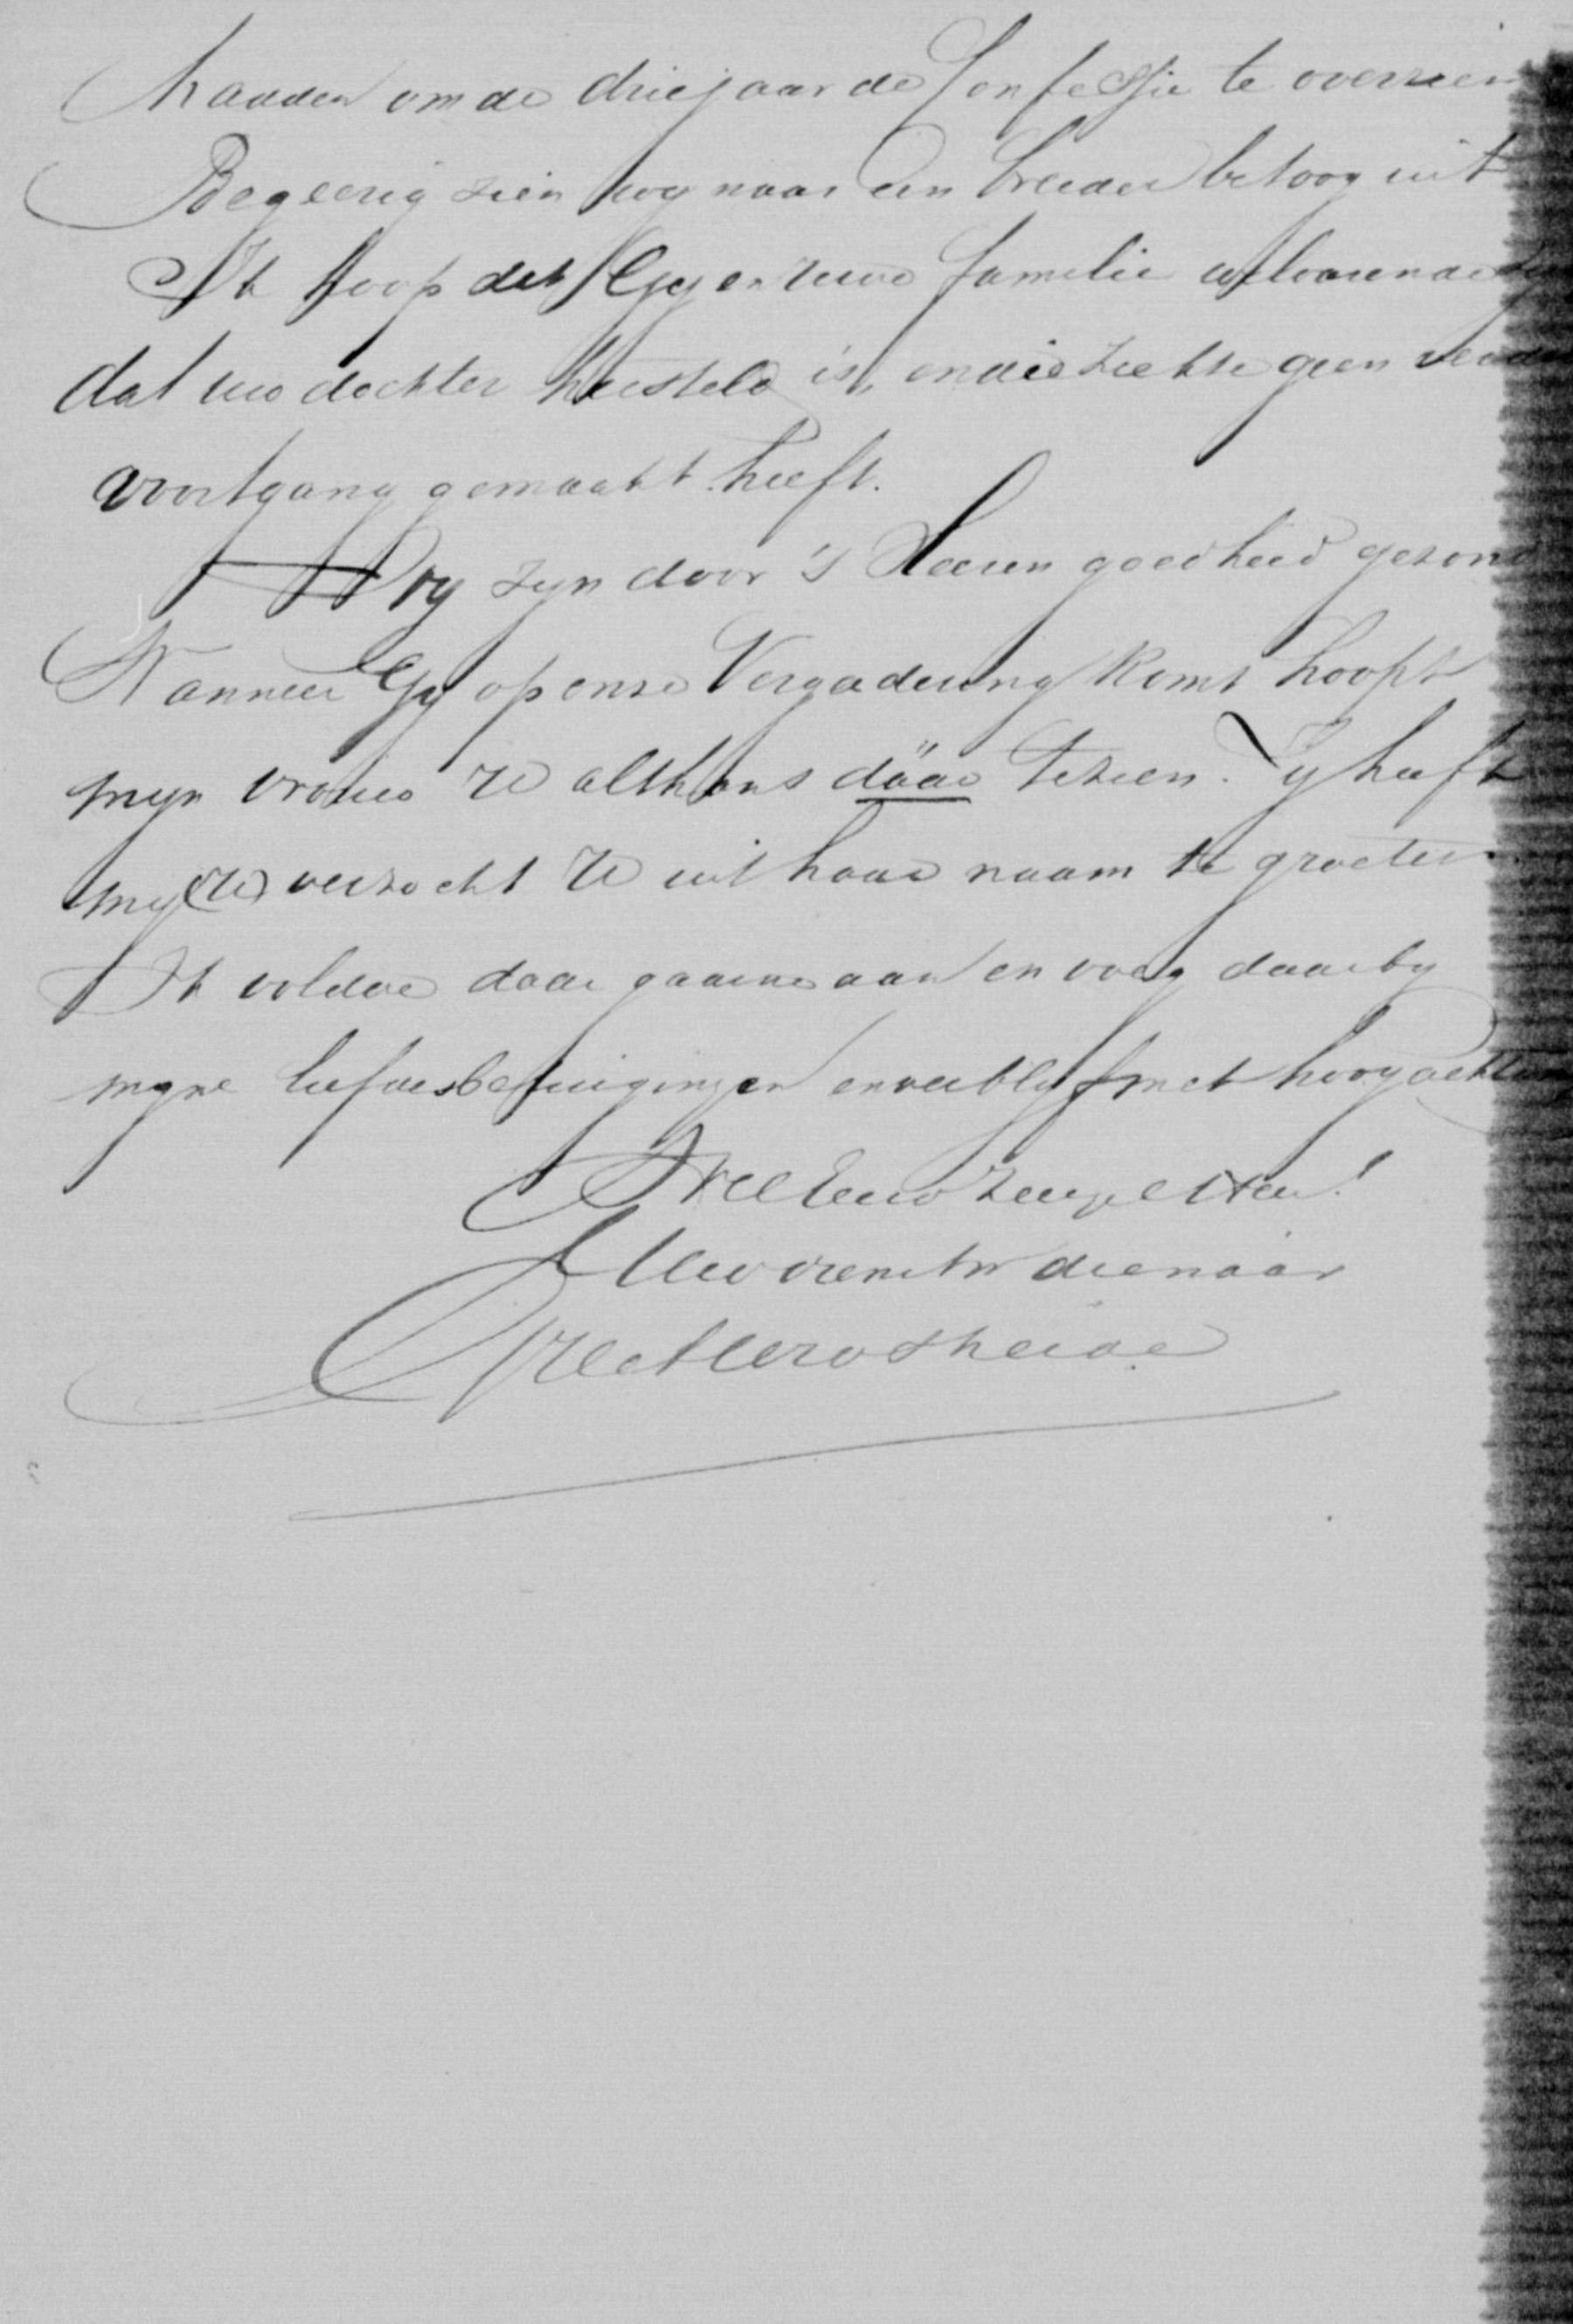 handen om de driejaarde Confessie te overzien
Begeerig zien wy naar een breeder betoog uit
Ik hoop dat Gy en uwe familie welvarende zyt
dat uw dochter hersteld is, en die ziekte geen verder
voortgang gemaakt heeft.
Wy zyn door 's Heeren goedheid gezond
Wanneer Gy op onze Vergadering komt hoopt
myn vrouw U althans däär te zien. Zy heeft
my (U) verzocht U uit haar naam te groeten
Ik voldoe daar gaarne aan en voeg daarby
myne liefdesbetuigingen en verblyf met hoogachting
WelEerw zeer gel Heer!
Uw vriend en dienaar